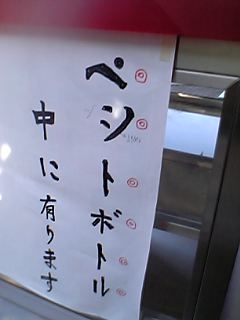 ペットボトル
中に有ります